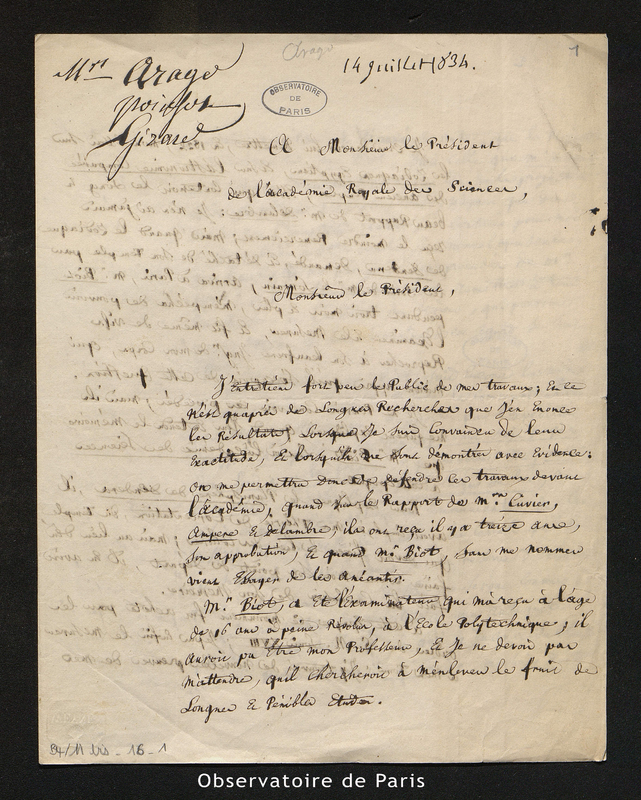 Arago
1
Mrs Arago
14 juillet 1834.
poinsot
Girard
OBSERVATOIRE
DE
PARIS
A Monsieur le Président
de l'académie Royale des Sciences,
Monsieur le Président,
J'Entretiens fort peu le Public de mes travaux; Et ce
n'est qu'après de Longues Recherches que J'en Enonce
les Résultats, Lorsque Je suis Convaincu de leur
Exactitude, Et lorsqu'ils me sont démontrés avec Evidence:
on me permettra donc de défendre ces travaux devant
l'académie, quand sur le Rapport de Mrs Cuvier,
Ampere Et delambre, ils ont reçu il y a treize ans,
son approbation, Et quand Mr Biot, sans me nommer
vient Essayer de les anéantir.
Mr Biot, a Eté l'Examinateur qui m'a reçu à l'âge
de 16 ans à peine Révolus, à l'Ecole Polytechnique; il
auroit pu Etre mon Professeur, Et Je ne devois pas
m'attendre, qu'il Chercheroit à m'enlever le fruit de
Longues Et Pénibles Etudes.
94/11 bis - 16 - 1
Observatoire de Paris